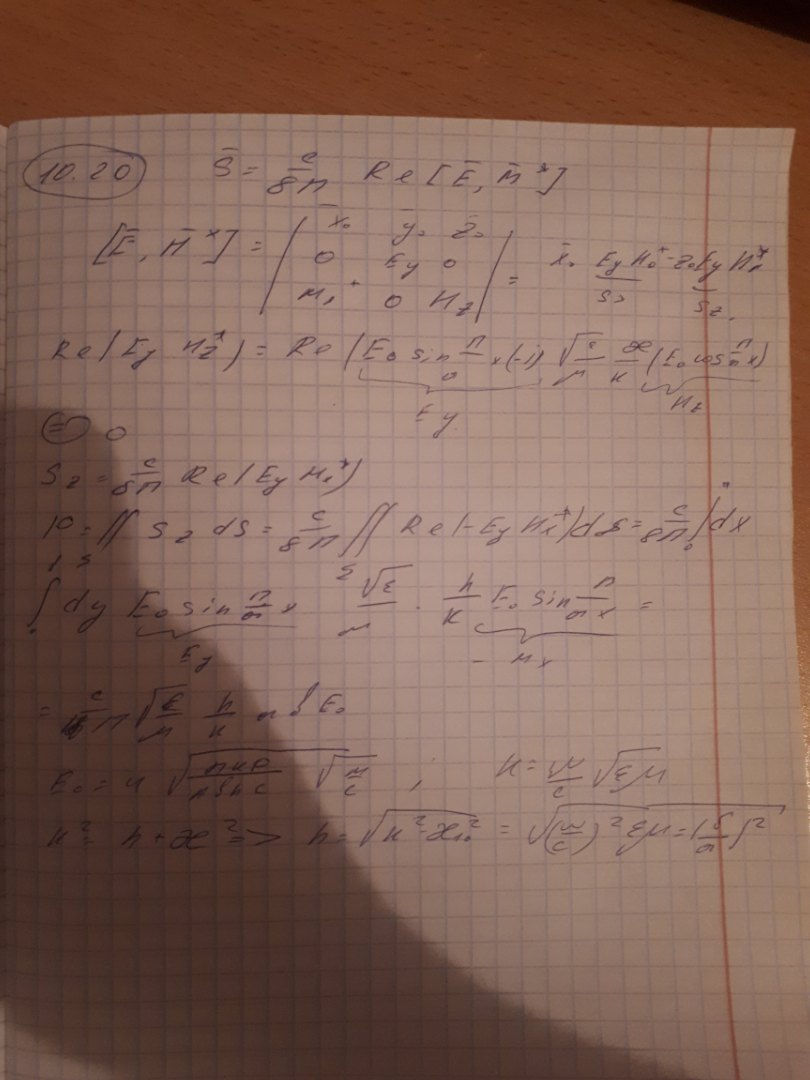 10.20 S̄ = c/8π Re[Ē, H̄*]
[Ē, H̄*] = | x̄₀ ȳ₀ z̄₀ | 0 Ey 0 | Hx* 0 Hz | = x̄₀ Ey Hz* - z₀ Ey Hx*
Re(Ey Hz*) = Re(E₀ sin π/a x (-i) √ε/μ æ/k (E₀ cos π/a x)
Ey Hz
⊜ 0
Sz = c/8π Re(Ey Hx*)
P = ∬ Sz dS = c/8π ∬ Re(-Ey Hx*)dS = c/8π ∫ dx
∫ dy E₀ sin π/a x √ε/μ · h/k E₀ sin π/a x =
Ey - Hx
= √ε/μ h/k E₀
E₀ = 4 √ √μ/ε ; k = ω/c √εμ
k² = h + æ² => h = √k² - æ₁₀² = √(ω/c)² εμ = (π/a)²